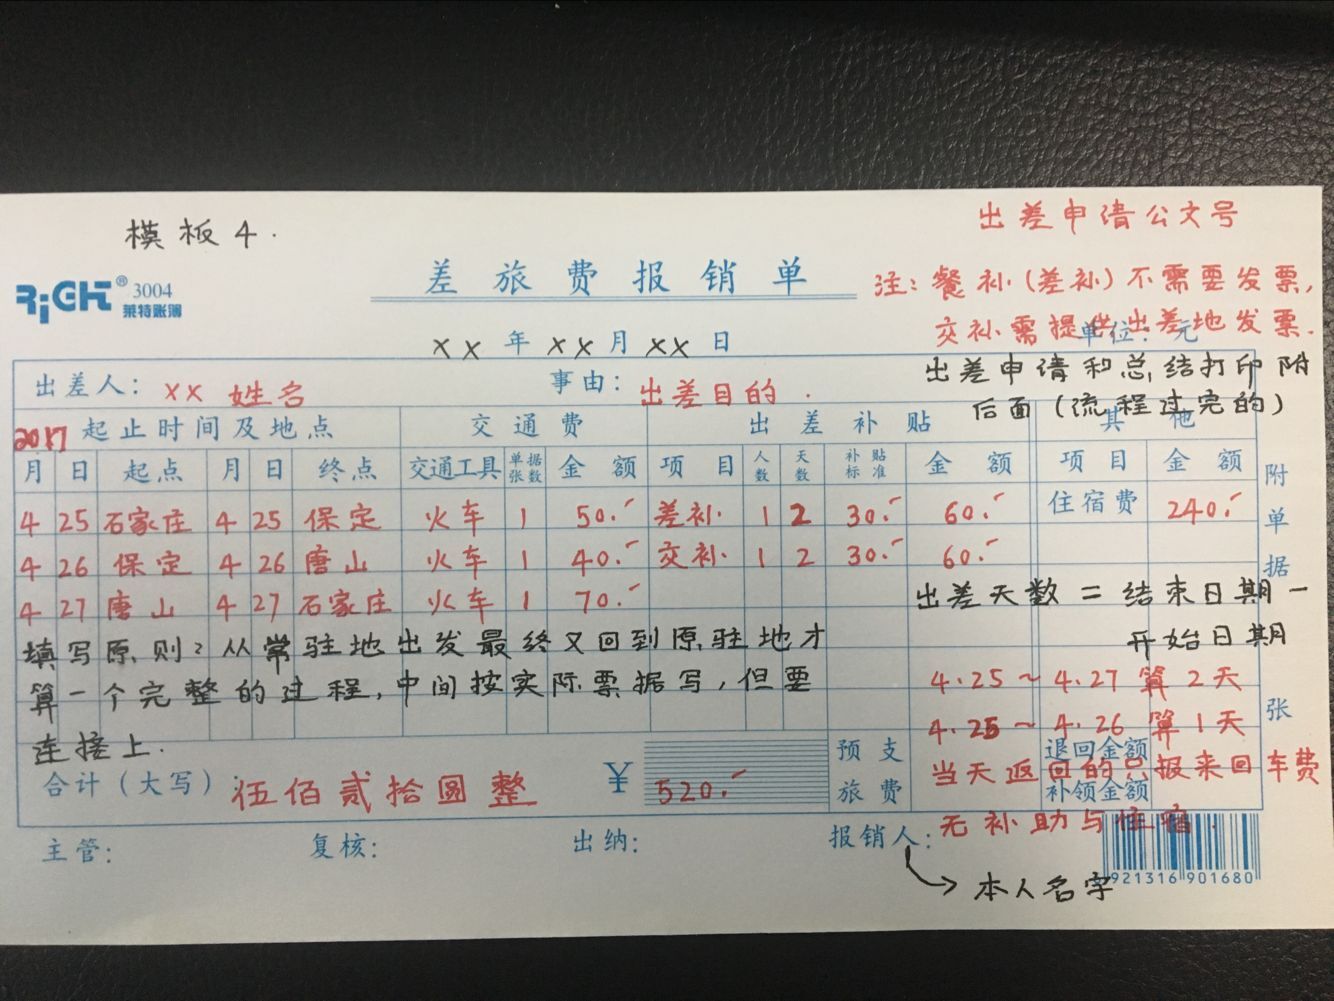 模板4.
出差申请公文号
RiGHT® 3004
莱特账簿
差旅费报销单
注：餐补(差补)不需要发票,
交补需提供出差地发票.
单位：元
XX 年 XX 月 XX 日
出差申请和总结打印附
后面(流程过完的)
出差人： XX 姓名 事由： 出差目的.
2017 起止时间及地点 交通费 出差补贴 其他
月 日 起点 月 日 终点 交通工具 单据张数 金额 项目 人数 天数 补贴标准 金额 项目 金额
4 25 石家庄 4 25 保定 火车 1 50.- 差补 1 2 30.- 60.- 住宿费 240.-
4 26 保定 4 26 唐山 火车 1 40.- 交补 1 2 30.- 60.-
4 27 唐山 4 27 石家庄 火车 1 70.-
附单据 张
出差天数 = 结束日期 -
开始日期
填写原则：从常驻地出发最终又回到原驻地才
算一个完整的过程,中间按实际票据写,但要
连接上.
4.25～4.27 算2天
4.25～4.26 算1天
当天返回的只报来回车费
无补助与住宿.
合计（大写） 伍佰贰拾圆整 ¥ 520.- 预支旅费 退回金额
补领金额
主管： 复核： 出纳： 报销人：
本人名字
921316 901680